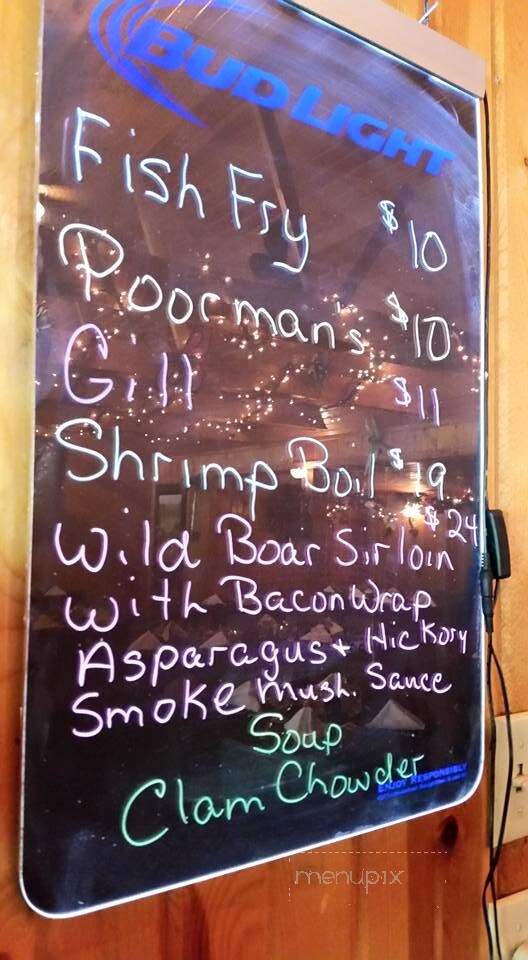 BUD LIGHT
Fish Fry $10
Poorman's $10
Gill $11
Shrimp Boil $19
$24
Wild Boar Sirloin
with Bacon Wrap
Asparagus + Hickory
Smoke Mush. Sauce
Soup
Clam Chowder
ENJOY RESPONSIBLY
menupix